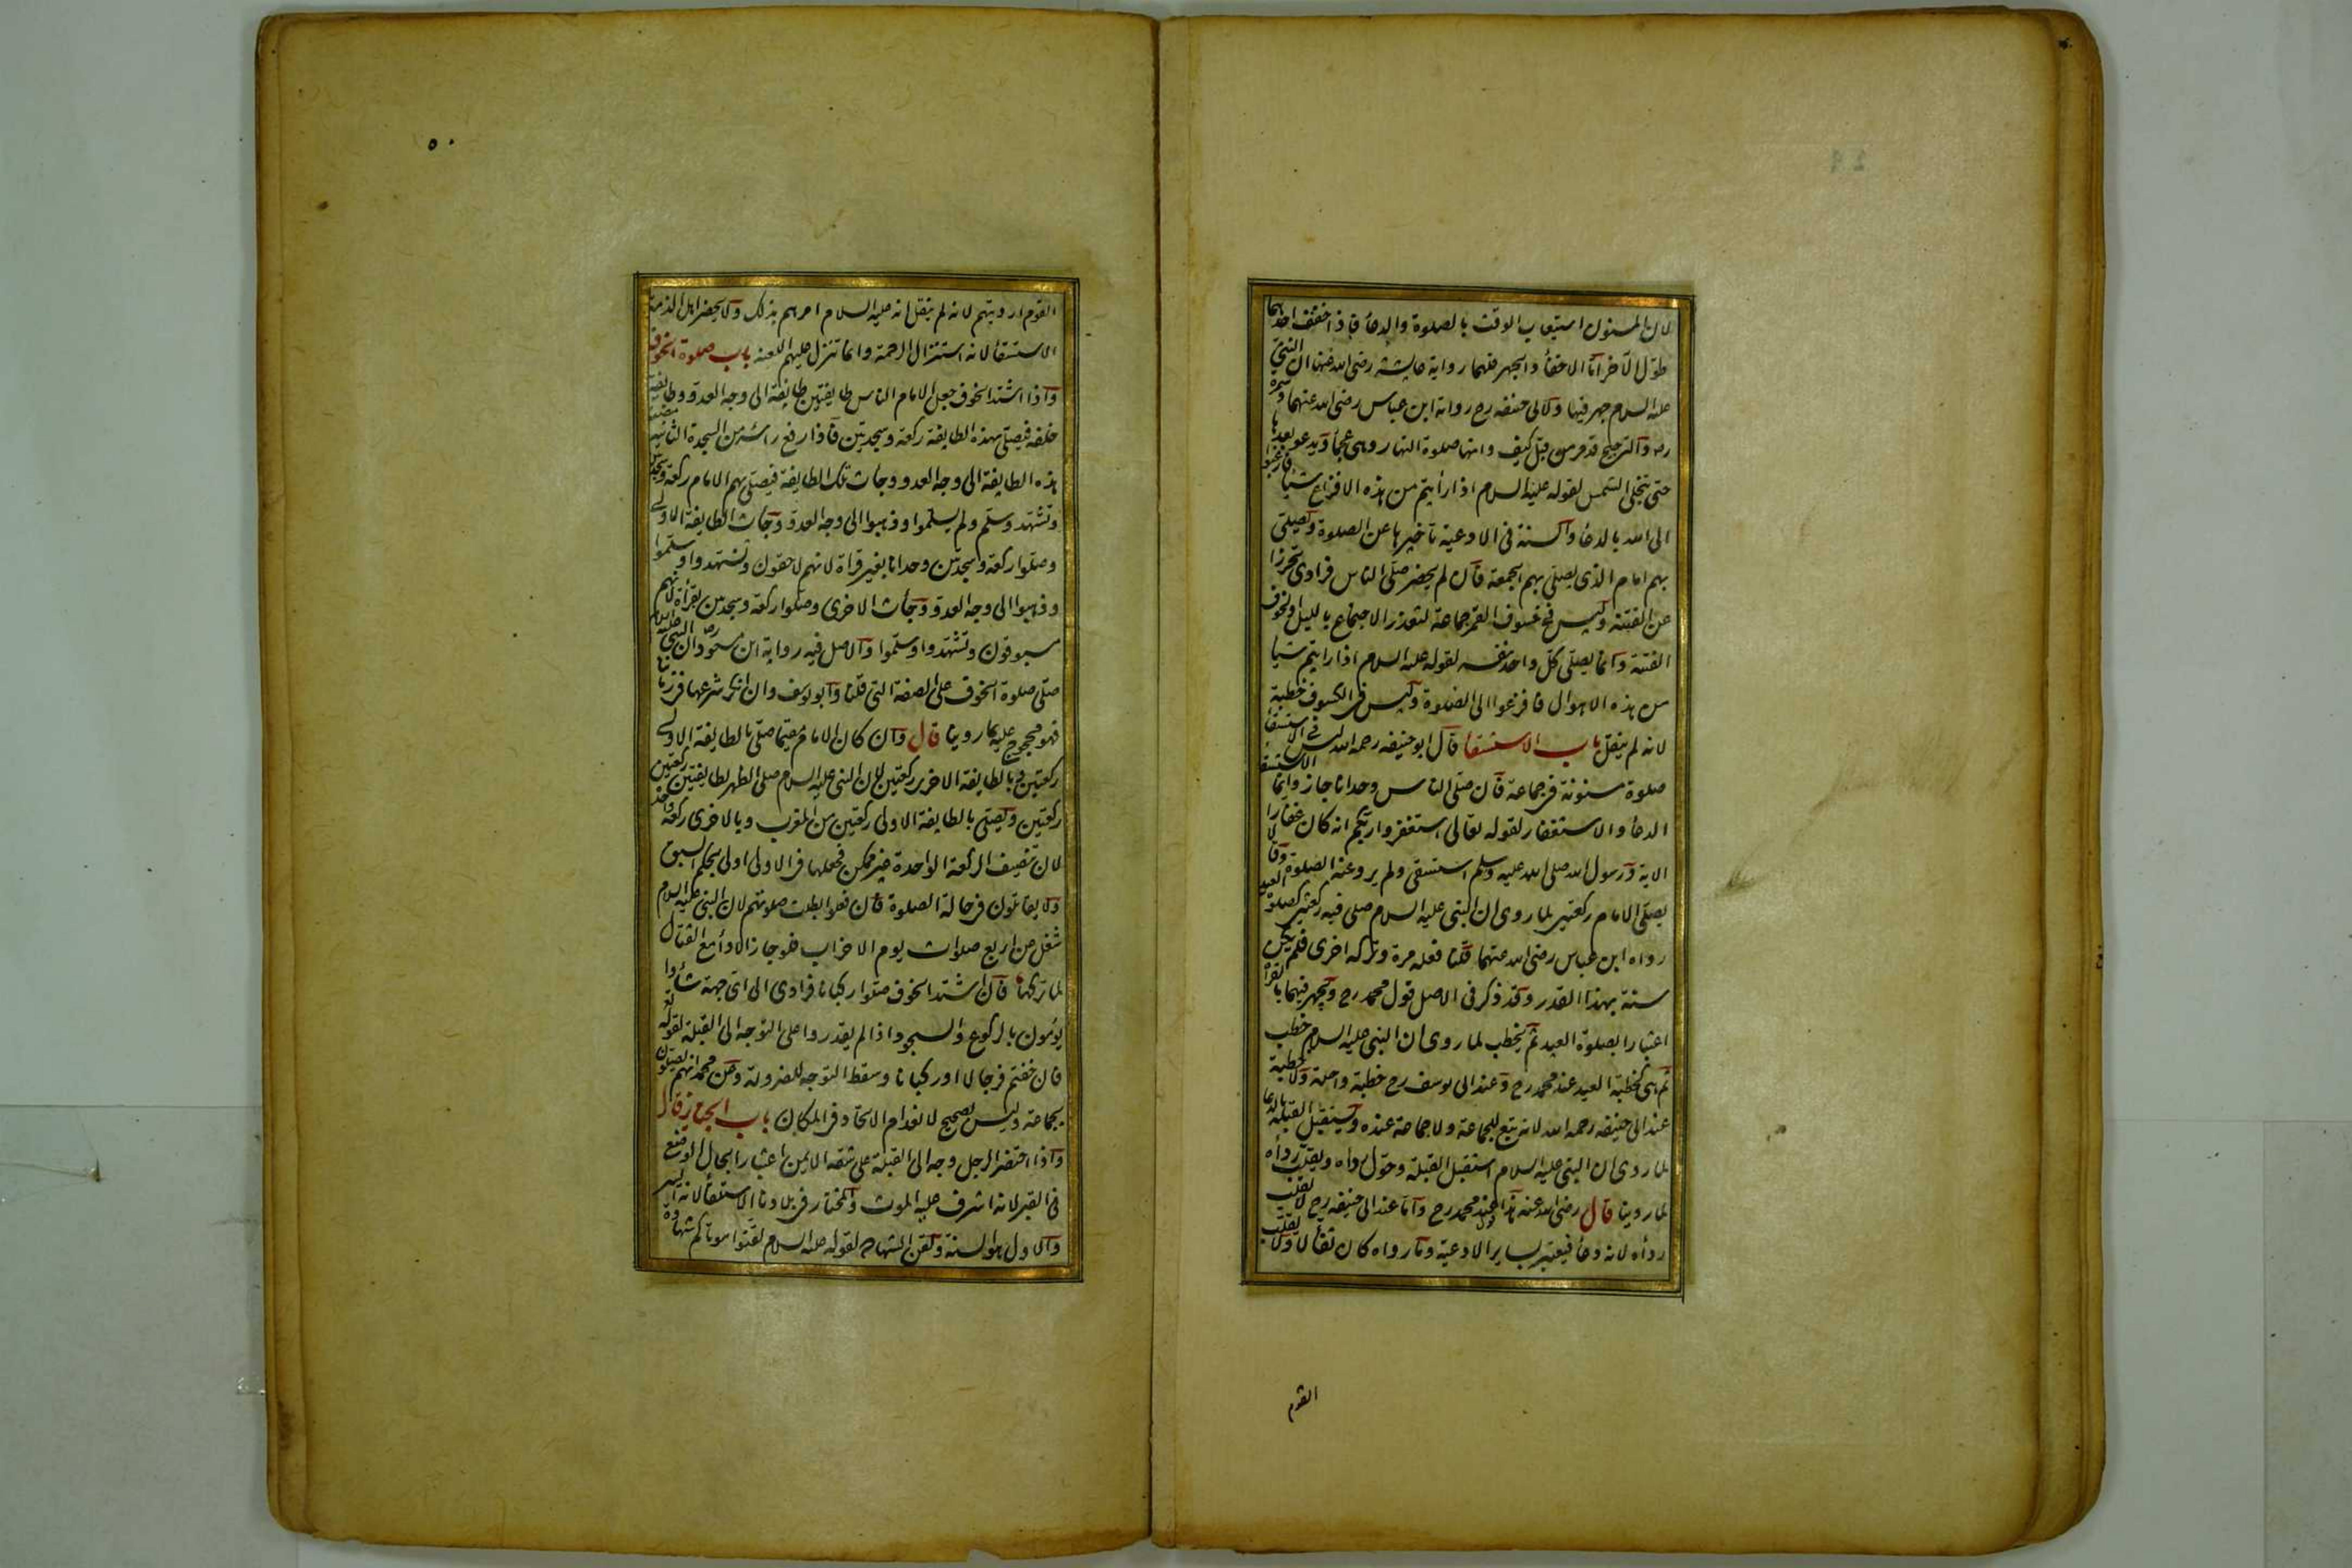 لان المسنون استيعاب الوقت بالصلوة والدعأ فاذا خفف احدهما
طول الآخر امّا الاخفأ والجهر فلهما رواية عايشه رضى الله عنها ان النبىّ
عليه السلام جهر فيها ولابى حنيفه رح رواية ابن عباس رضى الله عنهما وسمرة
رض والترجيح قد مر من قبل كيف وانها صلوة النهار وهى عجمأ ويدعو بعدها
حتى تنجلى الشمس لقوله عليه السلام اذا رأيتم من هذه الافزاع شيئا فارغبوا
الى الله بالدعأ والسنة فى الادعية تأخيرها عن الصلوة ويصلى
بهم امام الذى يصلى بهم الجمعة فان لم يحضر صلّى الناس فرادى تحرزا
عن الفتنه وليس فى خسوف القمر جماعة لتعذر الاجتماع بالليل او لخوف
الفتنة وانما يصلى كلّ واحد بنفسه لقوله عليه السلام اذا رايتم شيأ
من هذه الاهوال فافزعوا الى الصلوة وليس فى الكسوف خطبة
لانه لم ينقل باب الاستسقا قال ابوحنيفه رحمه الله ليس فى الاستسقأ
صلوة مسنونة فى جماعة فان صلّى الناس وحدانا جاز وانما الاستسقا
الدعأ والاستغفار لقوله تعالى استغفروا ربكم انه كان غفارا
الاية ورسول الله صلى الله عليه وسلم استسقى ولم يرو عنه الصلوة وقالا
يصلّى الامام ركعتين لما روى ان النبى عليه السلام صلى فيه ركعتين كصلوة العيد
رواه ابن عباس رضى الله عنهما قلنا فعله مرة وتركه اخرى فلم يكن
سنة بهذا القدر وقد ذكر فى الاصل قول محمد رح ويجهر فيهما بالقراة
اعتبارا بصلوة العيد ثم يخطب لما روى ان النبى عليه السلام خطب
ثم هى كخطبة العيد عند محمد رح وعند ابى يوسف رح خطبة واحدة ولا خطبة
عند ابى حنيفه رحمه الله لانه تبع للجماعة ولا جماعة عنده ويستقبل القبلة بالدعا
لما روى ان النبى عليه السلام استقبل القبلة وحوّل رداه ويقلب ردأه
لما روينا قال رضى الله عنه هذا قول محمد رح واما عند ابى حنيفه رح لا يقلب
ردأه لانه دعأ فيعتبر بساير الادعية وما رواه كان تفألا ولا يقلب
القوم
٥٠
القوم ارديتهم لانه لم ينقل انه عليه السلام امرهم بذلك ولا يحضر اهل الذمة
الاستسقأ لانه استنزال الرحمة وانما تنزل عليهم اللعنه باب صلوة الخوف
واذا اشتد الخوف جعل الامام الناس طايفتين طايفة الى وجه العدو وطايفة
خلفه فيصلى بهذه الطايفة ركعة وسجدتين فاذا رفع رأسه من السجدة الثانية مضت
هذه الطايفة الى وجه العدو وجات تلك الطايفة فيصلى بهم الامام ركعة وسجدتين
وتشهد وسلّم ولم يسلّموا وذهبوا الى وجه العدو وجأت الطايفة الاولى
وصلّوا ركعة وسجدتين وحدانا بغير قراة لانهم لاحقون وتشهدوا وسلّموا
وذهبوا الى وجه العدو وجأت الاخرى وصلوا ركعة وسجدتين بقرأة لانهم
مسبوقون وتشهدوا وسلّموا والاصل فيه رواية ابن مسعود رض ان النبى عليه السلام
صلّى صلوة الخوف على الصفة التى قلنا وابويوسف وان انكر شرعيتها فى زماننا
فهو محجوج عليه بما روينا قال وان كان الامام مقيما صلّى بالطايفة الاولى
ركعتين وبالطايفة الاخرى ركعتين لان النبى عليه السلام صلى الظهر بطايفتين ركعتين
ركعتين ويصلى بالطايفة الاولى ركعتين من المغرب وبالاخرى ركعة واحدة
لان تنصيف الركعة الواحدة غير ممكن فجعلها فى الاولى اولى بحكم السبق
ولا يقاتلون فى حالة الصلوة فان فعلوا بطلت صلوتهم لان النبى عليه السلام
شغل عن اربع صلوات يوم الاحزاب فلو جاز الادأ مع القتال
لما تركها فان اشتد الخوف صلّوا ركبانا فرادى الى اىّ جهة شأوا
يؤمون بالركوع والسجود اذا لم يقدروا على التوجه الى القبلة لقوله تع
فان خفتم فرجالا او ركبانا وسقط التوجه للضرورة وعن محمد انهم يصلون
بجماعة وليس بصحيح لانعدام الاتحاد فى المكان باب الجنايز قال
واذا احتضر الرجل وجه الى القبلة على شقه الايمن اعتبارا بحال الوضع
فى القبر لانه اشرف عليه الموت والمختار فى بلادنا الاستلقأ لانه ايسر
والاول هو السنة ولقن الشهادة لقوله عليه السلام لقّنوا موتاكم شهادة